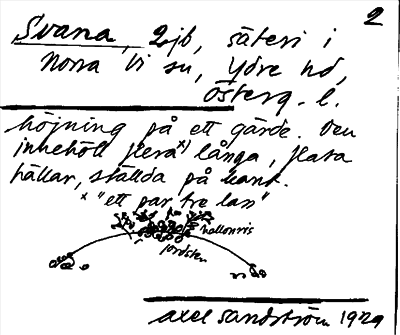 2
Svana 2 jb, säteri i
Norra Vi sn, Ydre hd,
Österg. l.
höjning på ett gärde. Den
innehöll flera x) långa, flata
hällar, ställda på kant.
x "ett par tre lass"
hallonris
jordsten
Axel Sandström 1929